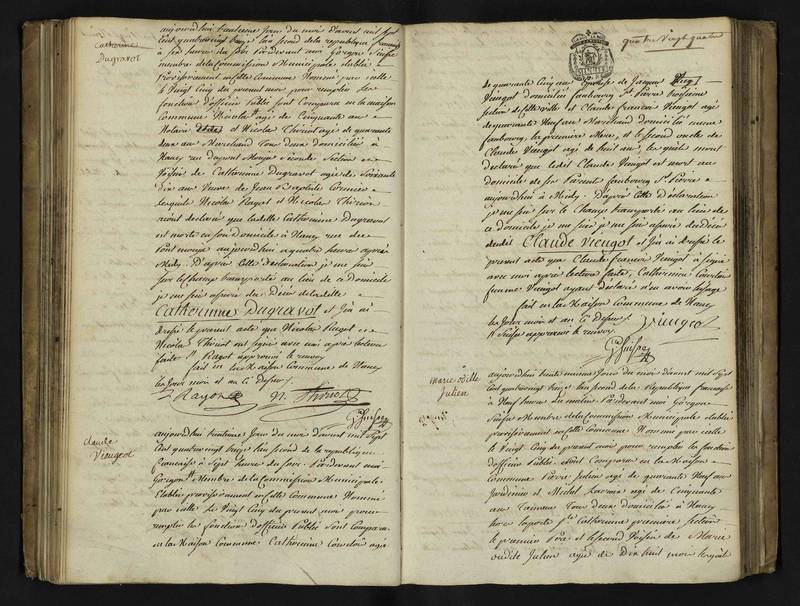 Catherine
Dugravot
aujourd'hui trentieme Jour du moi d'aoust mil sept
Cent quatre vingt treize l'an second de la republique francaise
à six heures du soir Pardevant moi Gorgon Suisse
membre de la Commission Municipale établie
Provisoirement en cette Commune Nommé par celle
le Vingt Cinq du present mois pour remplir les
fonction d'officier Public sont Comparu en la maison
Commune Nicolas agé de Cinquante ans
Notaire et Nicolas Thiriot agé de quarante
deux ans Marchand Tous deux domiciliés à
Nancy rue Seconde Section
Voisin de Catherine Dugravot agée de Soixante
Dix ans Veuve de Jean Baptiste
lesquels Nicolas Ragot et Nicolas Thiriot
m'ont déclaré que ladite Catherine Dugravot
est morte en son domicile à Nancy rue
aujourd'hui a quatre heures après
Midy. D'après cette déclaration je me suis
sur le champ transporté au lieu de ce domicile
je me suis assuré du Décès de ladite
Catherine Dugravot et j'en ai
dressé le present acte que Nicolas Ragot et
Nicolas Thiriot ont signé avec moi après lecture
faite Ragot approuvé le renvoy
fait en la Maison Commune de Nancy
les Jour mois et an Cy Dessus
N. Thiriot
G. Suisse
claude
Vieugot
aujourd'hui trentieme Jour du mois d'aout mil Sept
Cent quatre vingt treize l'an Second de la republique
Française à Sept heures du soir. Pardevant moi
Gorgon Membre de la Commission Municipale
Etablie provisoirement en cette Commune Nommé
par celle le Vingt Cinq du present mois pour
remplir les fonction d'officier Public sont Comparu
en la Maison Commune Catherine Courdon agée
quatre Vingt quatre
de quarante Cinq ans Epouse de Jacques
Vieugot domiciliée faubourg St Pierre troisieme
Section de Cette Ville et Claude Francois Vieugot agé
de quarante Neuf ans Marchand domicilié meme
faubourg, la premiere Mere, et le second oncle de
Claude Vieugot agé de huit ans, lesquels mont
declaré que ledit Claude Vieugot est mort au
domicile de ses Parents faubourg St Pierre
aujourd'hui à Midy. D'après cette Déclaration
je me suis sur le Champ transporté au lieu de
ce domicile je me suis assuré du décès
dudit Claude Vieugot et J'en ai dressé le
present acte que Claude francois Vieugot à signé
avec moi après lecture faite, Catherine Courdon
femme Vieugot ayant declaré n'en avoir l'usage
fait en la Maison Commune de Nancy
les Jour mois et an Cy Dessus
Suisse approuvé le renvoy
Vieugot
G. Suisse
marie odille
Julien
aujourd'hui trente unieme Jour du mois d'aout mil Sept
Cent quatre vingt treize l'an Second de la Republique francaise
à Neuf heures du matin Pardevant moi Gorgon
Suisse Membre de la Commission Municipale établie
provisoirement en cette Commune Nommé par celle
le Vingt Cinq du present mois pour remplir les fonction
d'officier Public Sont Comparu en la Maison
Commune Pierre Julien agé de quarante Neuf ans
Jardinier et Michel agé de Cinquante
ans Tous deux domiciliés à Nancy
hors la porte Ste Catherine premiere Section
le premier Pere et le second Voisin de Marie
oudile Julien agée de Dix huit mois lesquels